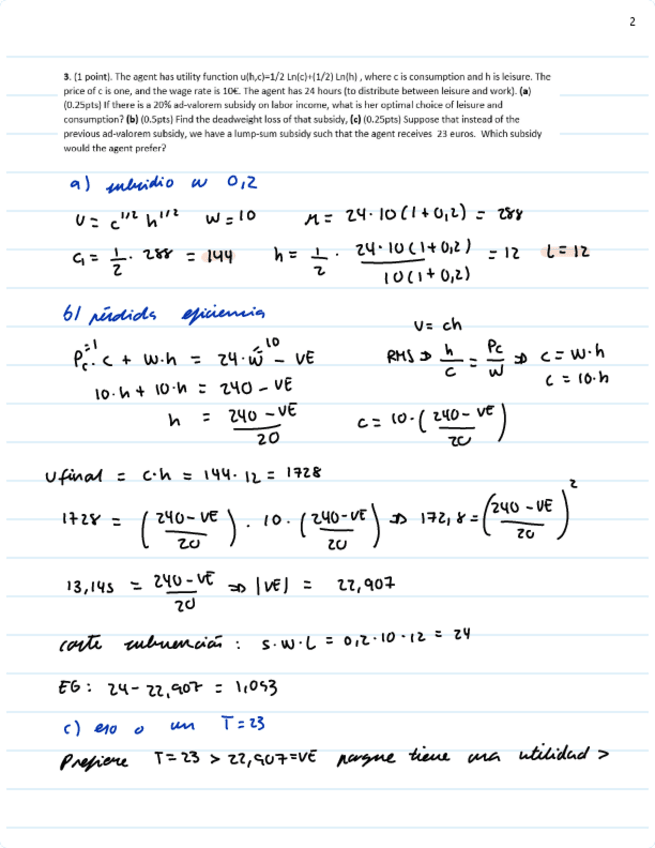 2
3. (1 point). The agent has utility function u(h,c)=1/2 Ln(c)+(1/2) Ln(h) , where c is consumption and h is leisure. The
price of c is one, and the wage rate is 10€. The agent has 24 hours (to distribute between leisure and work). (a)
(0.25pts) If there is a 20% ad-valorem subsidy on labor income, what is her optimal choice of leisure and
consumption? (b) (0.5pts) Find the deadweight loss of that subsidy, (c) (0.25pts) Suppose that instead of the
previous ad-valorem subsidy, we have a lump-sum subsidy such that the agent receives 23 euros. Which subsidy
would the agent prefer?
a) subsidio w 0,2
U = c^1/2 h^1/2 W = 10 M = 24·10(1+0,2) = 288
C1 = 1/2 · 288 = 144 h = 1/2 · 24·10(1+0,2) / 10(1+0,2) = 12 L = 12
b) pérdida eficiencia
U = ch
Pc^=1 · C + W·h = 24·W^10 - VE RMS ⇒ h/c = Pc/W ⇒ C = W·h
C = 10·h
10·h + 10·h = 240 - VE
h = 240 - VE / 20 C = 10·(240 - VE / 20)
U final = C·h = 144·12 = 1728
1728 = (240 - VE / 20) · 10 · (240 - VE / 20) ⇒ 172,8 = (240 - VE / 20)^2
13,145 = 240 - VE / 20 ⇒ |VE| = 22,907
coste subvención : S·W·L = 0,2·10·12 = 24
EG : 24 - 22,907 = 1,093
c) eso o un T = 23
Prefiere T = 23 > 22,907 = VE porque tiene una utilidad >